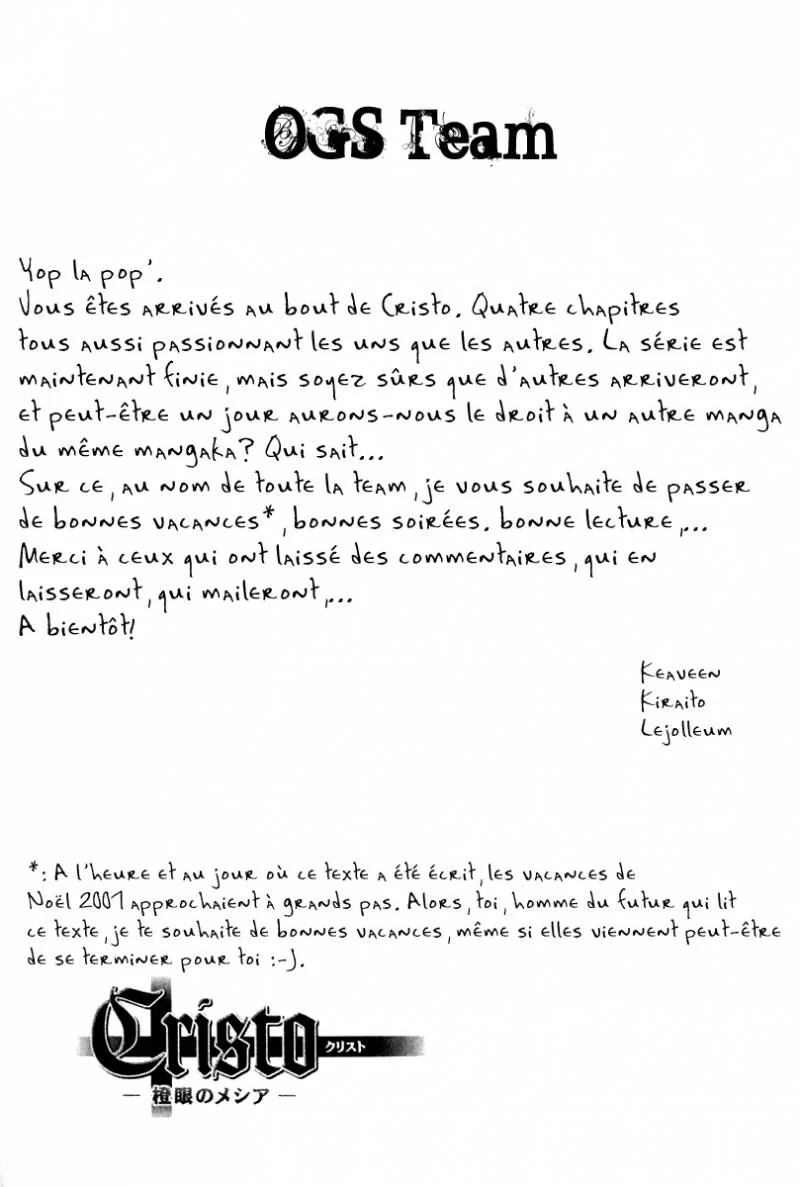 OGS Team
Yop la pop'.
Vous êtes arrivés au bout de Cristo. Quatre chapitres
tous aussi passionnant les uns que les autres. La série est
maintenant finie, mais soyez sûrs que d'autres arriveront,
et peut-être un jour aurons-nous le droit à un autre manga
du même mangaka? Qui sait...
Sur ce, au nom de toute la team, je vous souhaite de passer
de bonnes vacances*, bonnes soirées. bonne lecture,...
Merci à ceux qui ont laissé des commentaires, qui en
laisseront, qui maileront,...
A bientôt!
Keaveen
Kiraito
Lejolleum
*: A l'heure et au jour où ce texte a été écrit, les vacances de
Noël 2001 approchaient à grands pas. Alors, toi, homme du futur qui lit
ce texte, je te souhaite de bonnes vacances, même si elles viennent peut-être
de se terminer pour toi :-).
Cristo クリスト
― 橙眼のメシア ―